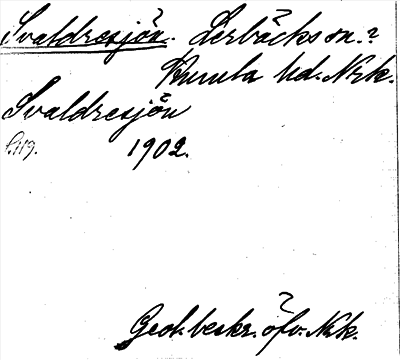 Svaldresjön. Lerbäcks sn.?
Kumla hd. Nrk.
Svaldresjön
s. 119. 1902.
Geol. beskr. öfv. Nrk.